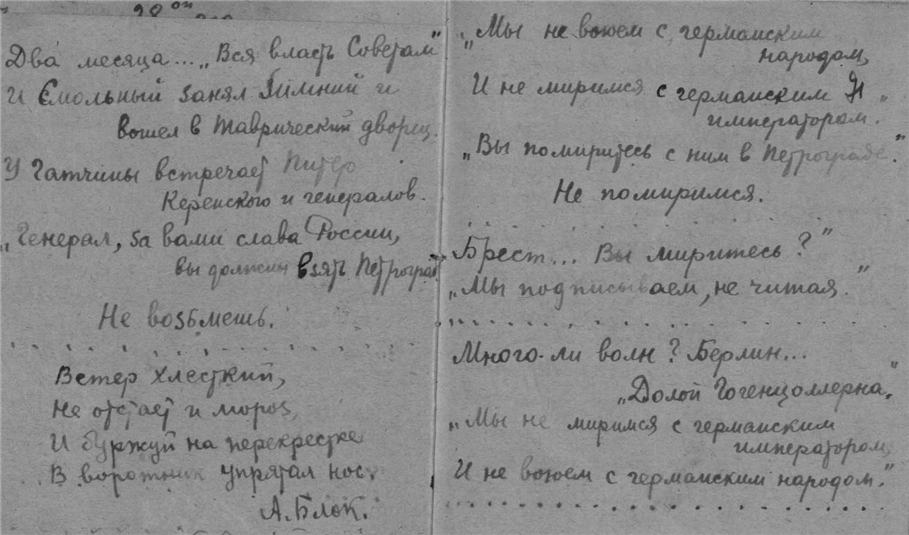 28ой
Два месяца... „Вся власть Советам"
И Смольный занял Зимний и
вошел в Таврический дворец.
У Гатчины встречает Питер
Керенского и генералов.
„Генерал, за вами слава России,
вы должны взять Петроград."
Не возьмешь.
Ветер хлесткий,
Не отстает и мороз,
И буржуй на перекрестке
В воротник упрятал нос.
А. Блок.
„Мы не воюем с германским
народом,
И не миримся с германским
императором."
„Вы помиритесь с ним в Петрограде."
Не помиримся.
Брест... Вы миритесь?"
„Мы подписываем, не читая."
Много-ли волн? Берлин...
„Долой Гогенцоллерна."
„Мы не миримся с германским
императором,
И не воюем с германским народом."